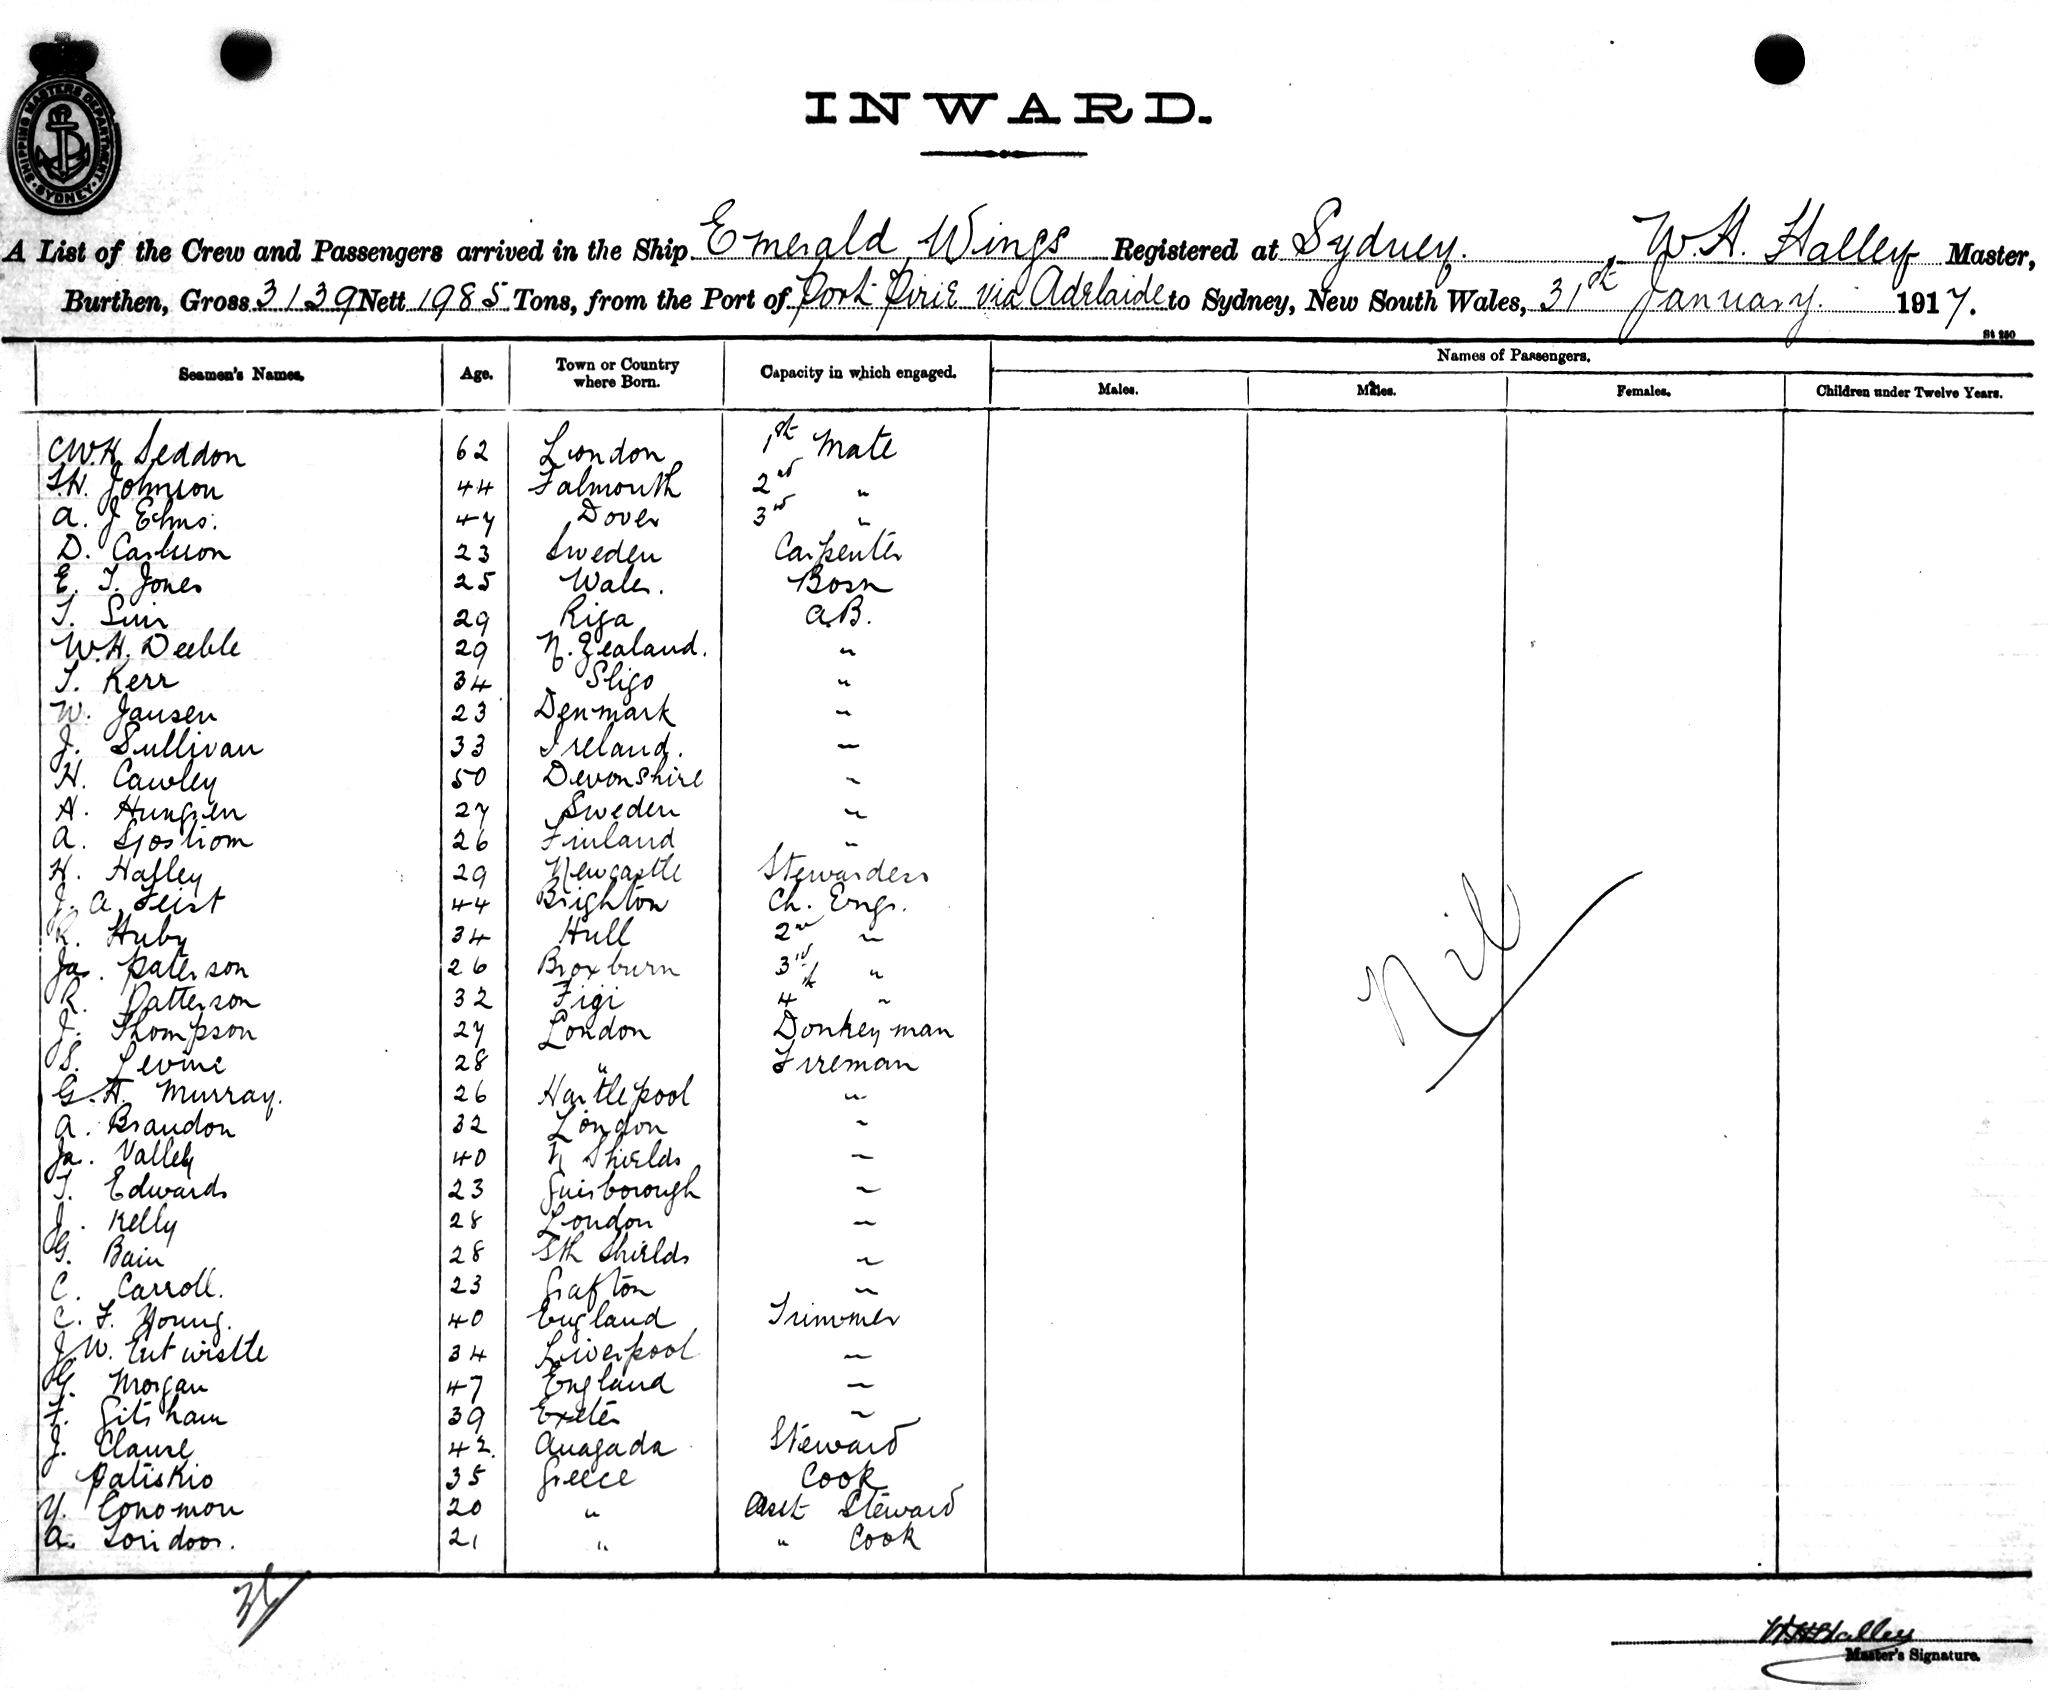 SHIPPING MASTERS DEPARTMENT · SYDNEY ·
INWARD.
A List of the Crew and Passengers arrived in the Ship Emerald Wings Registered at Sydney. , W. H. Halley Master,
Burthen, Gross 3139 Nett 1985 Tons, from the Port of Port Pirie via Adelaide to Sydney, New South Wales, 31st January. 1917.
St 250
Seamen's Names. Age. Town or Country where Born. Capacity in which engaged. Names of Passengers.
Males. Males. Females. Children under Twelve Years.
C.W.H. Seddon 62 London 1st Mate
Johnson 44 Falmouth 2nd "
A. J Elms. 47 Dover 3rd "
D. Carlsson 23 Sweden Carpenter
E. T. Jones 25 Wales. Bosn
29 Riga A.B.
W.H. Deeble 29 N. Zealand. "
T. Kerr 34 Sligo "
W. Jansen 23 Denmark "
J. Sullivan 33 Ireland. "
H. Cawley 50 Devonshire "
A. 27 Sweden "
A. Sjostrom 26 Finland "
H. Halley 29 Newcastle Stewardess
J. A. Feist 44 Brighton Ch. Engr.
R. Huby 34 Hull 2nd "
Jas. Paterson 26 Broxburn 3rd "
R. Patterson 32 Figi 4th "
J. Thompson 27 London Donkeyman
S. Levine 28 " Fireman
G. H. Murray. 26 Hartlepool "
A. Brandon 32 London "
Jas. Valley 40 N Shields "
T. Edwards 23 Guisborough "
J. Kelly 28 London "
G. Bain 28 Sth Shields "
C. Carroll. 23 Grafton "
C. F. Young. 40 England Trimmer
J. W. Entwistle 34 Liverpool "
G. Morgan 47 England "
F. Gitsham 39 Exeter "
J. Clause 42 Anagada Steward
Patiskio 35 Greece Cook
Y. Conomon 20 " Asst Steward
A. 21 " " Cook
Nil
W H Halley
Master's Signature.